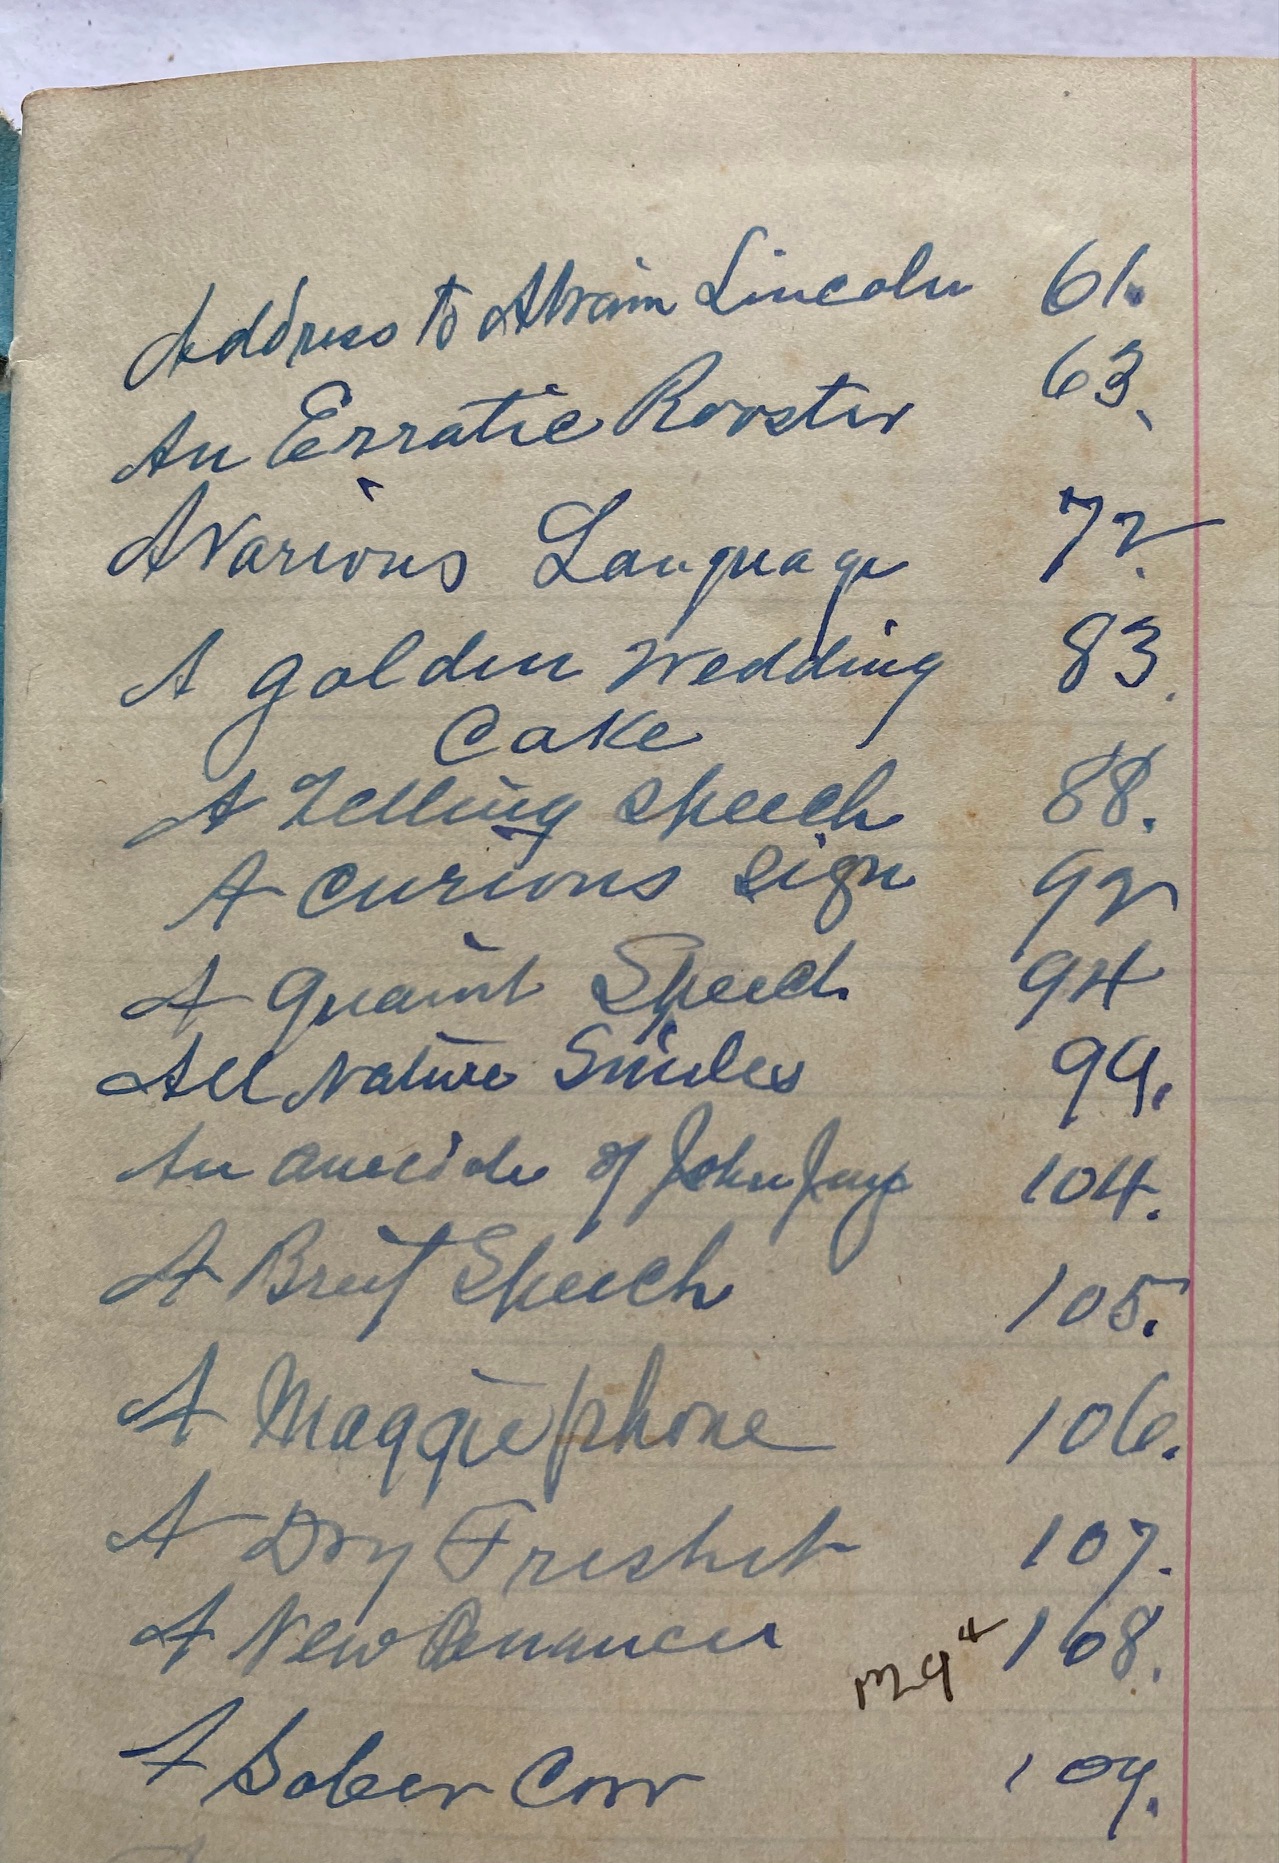 Address to Abram Lincoln 61.
An Erratic Rooster 63.
A Various Language 72.
A golden Wedding 83.
Cake
A Telling Speech 88.
A Curious Sign 92
A Quaint Speech 94
All Nature Smiles 99.
An anecdote of John Jay 104.
A Brief Speech 105.
A Maggie phone 106.
A Dry Freshet 107.
A New 108.
A Sober Cow 109.